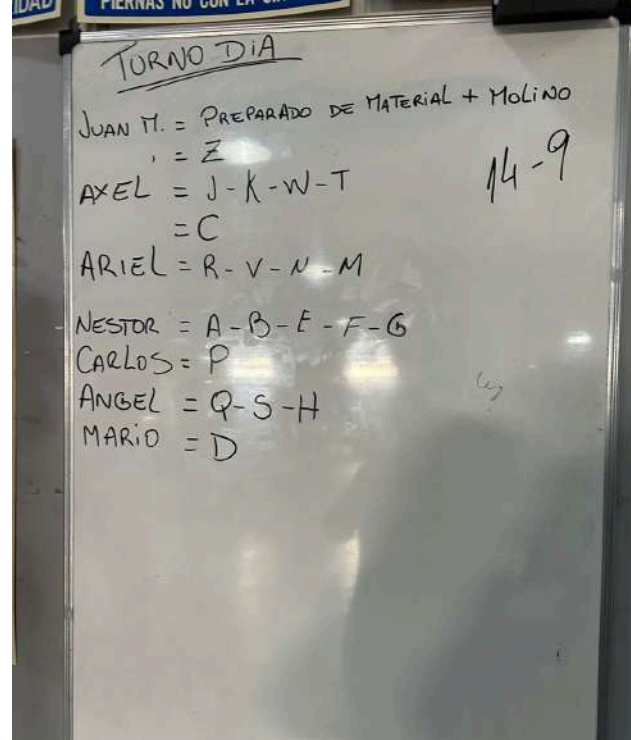 PIERNAS NO CON LA
TURNO DiA
JUAN M. = PREPARADO DE MATERiAL + MOLiNO
= Z
14-9
AXEL = J-K-W-T
= C
ARIEL = R-V-N-M
NESTOR = A-B-E-F-G
CARLOS = P
ANGEL = Q-S-H
MARiO = D